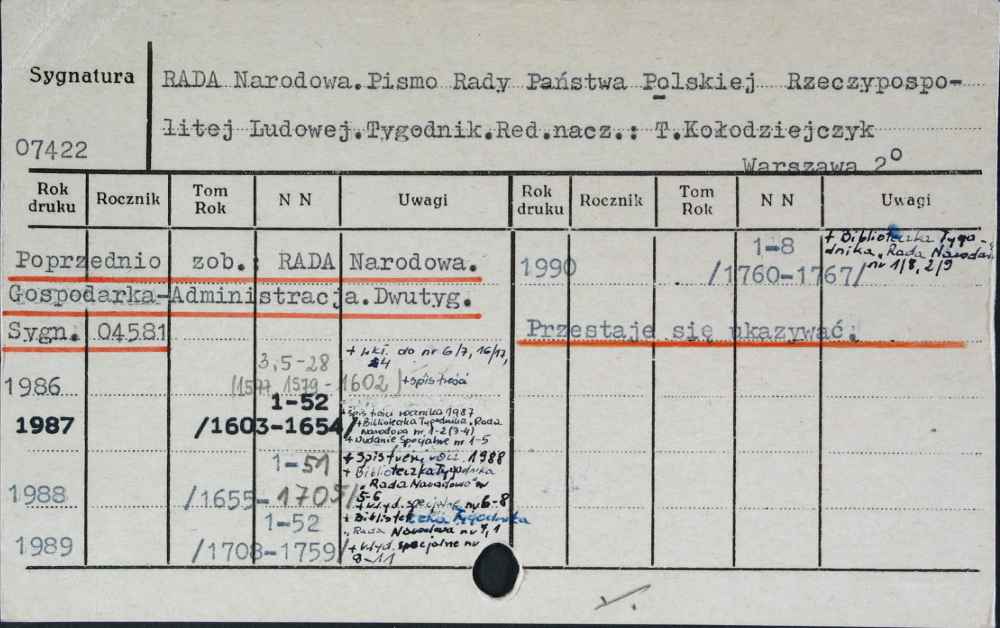 Sygnatura
RADA Narodowa.Pismo Rady Państwa Polskiej Rzeczypospo-
litej Ludowej.Tygodnik.Red.nacz.: T.Kołodziejczyk
07422
Warszawa 2°
Rok druku Rocznik Tom Rok N N Uwagi Rok druku Rocznik Tom Rok N N Uwagi
Poprzednio zob.: RADA Narodowa.
Gospodarka-Administracja.Dwutyg.
Sygn. 04581
3,5-28
+ wkł. do nr 6/7, 16/17,
1986 (1577, 1579-1602) + spis treści
1-52
1987 /1603-1654/
+ spis treści rocznika 1987
+ Biblioteczka Tygodnika "Rada
Narodowa nr 1-2 (3-4)
+ Wydanie Specjalne nr 1-5
1-51
1988 /1655-1705/
+ Spis treści rocz. 1988
+ Biblioteczka Tygodnika
"Rada Narodowa" nr
5-6
+ Wyd. specjalne nr 6-8
1-52
1989 /1708-1759/
+ Biblioteczka Tygodnika
"Rada Narodowa nr 7, 1
+ Wyd. specjalne nr
9-11
1-8
1990 /1760-1767/
+ Biblioteczka Tygo-
dnika "Rada Narodowa
nr 1/8, 2/9
Przestaje się ukazywać.